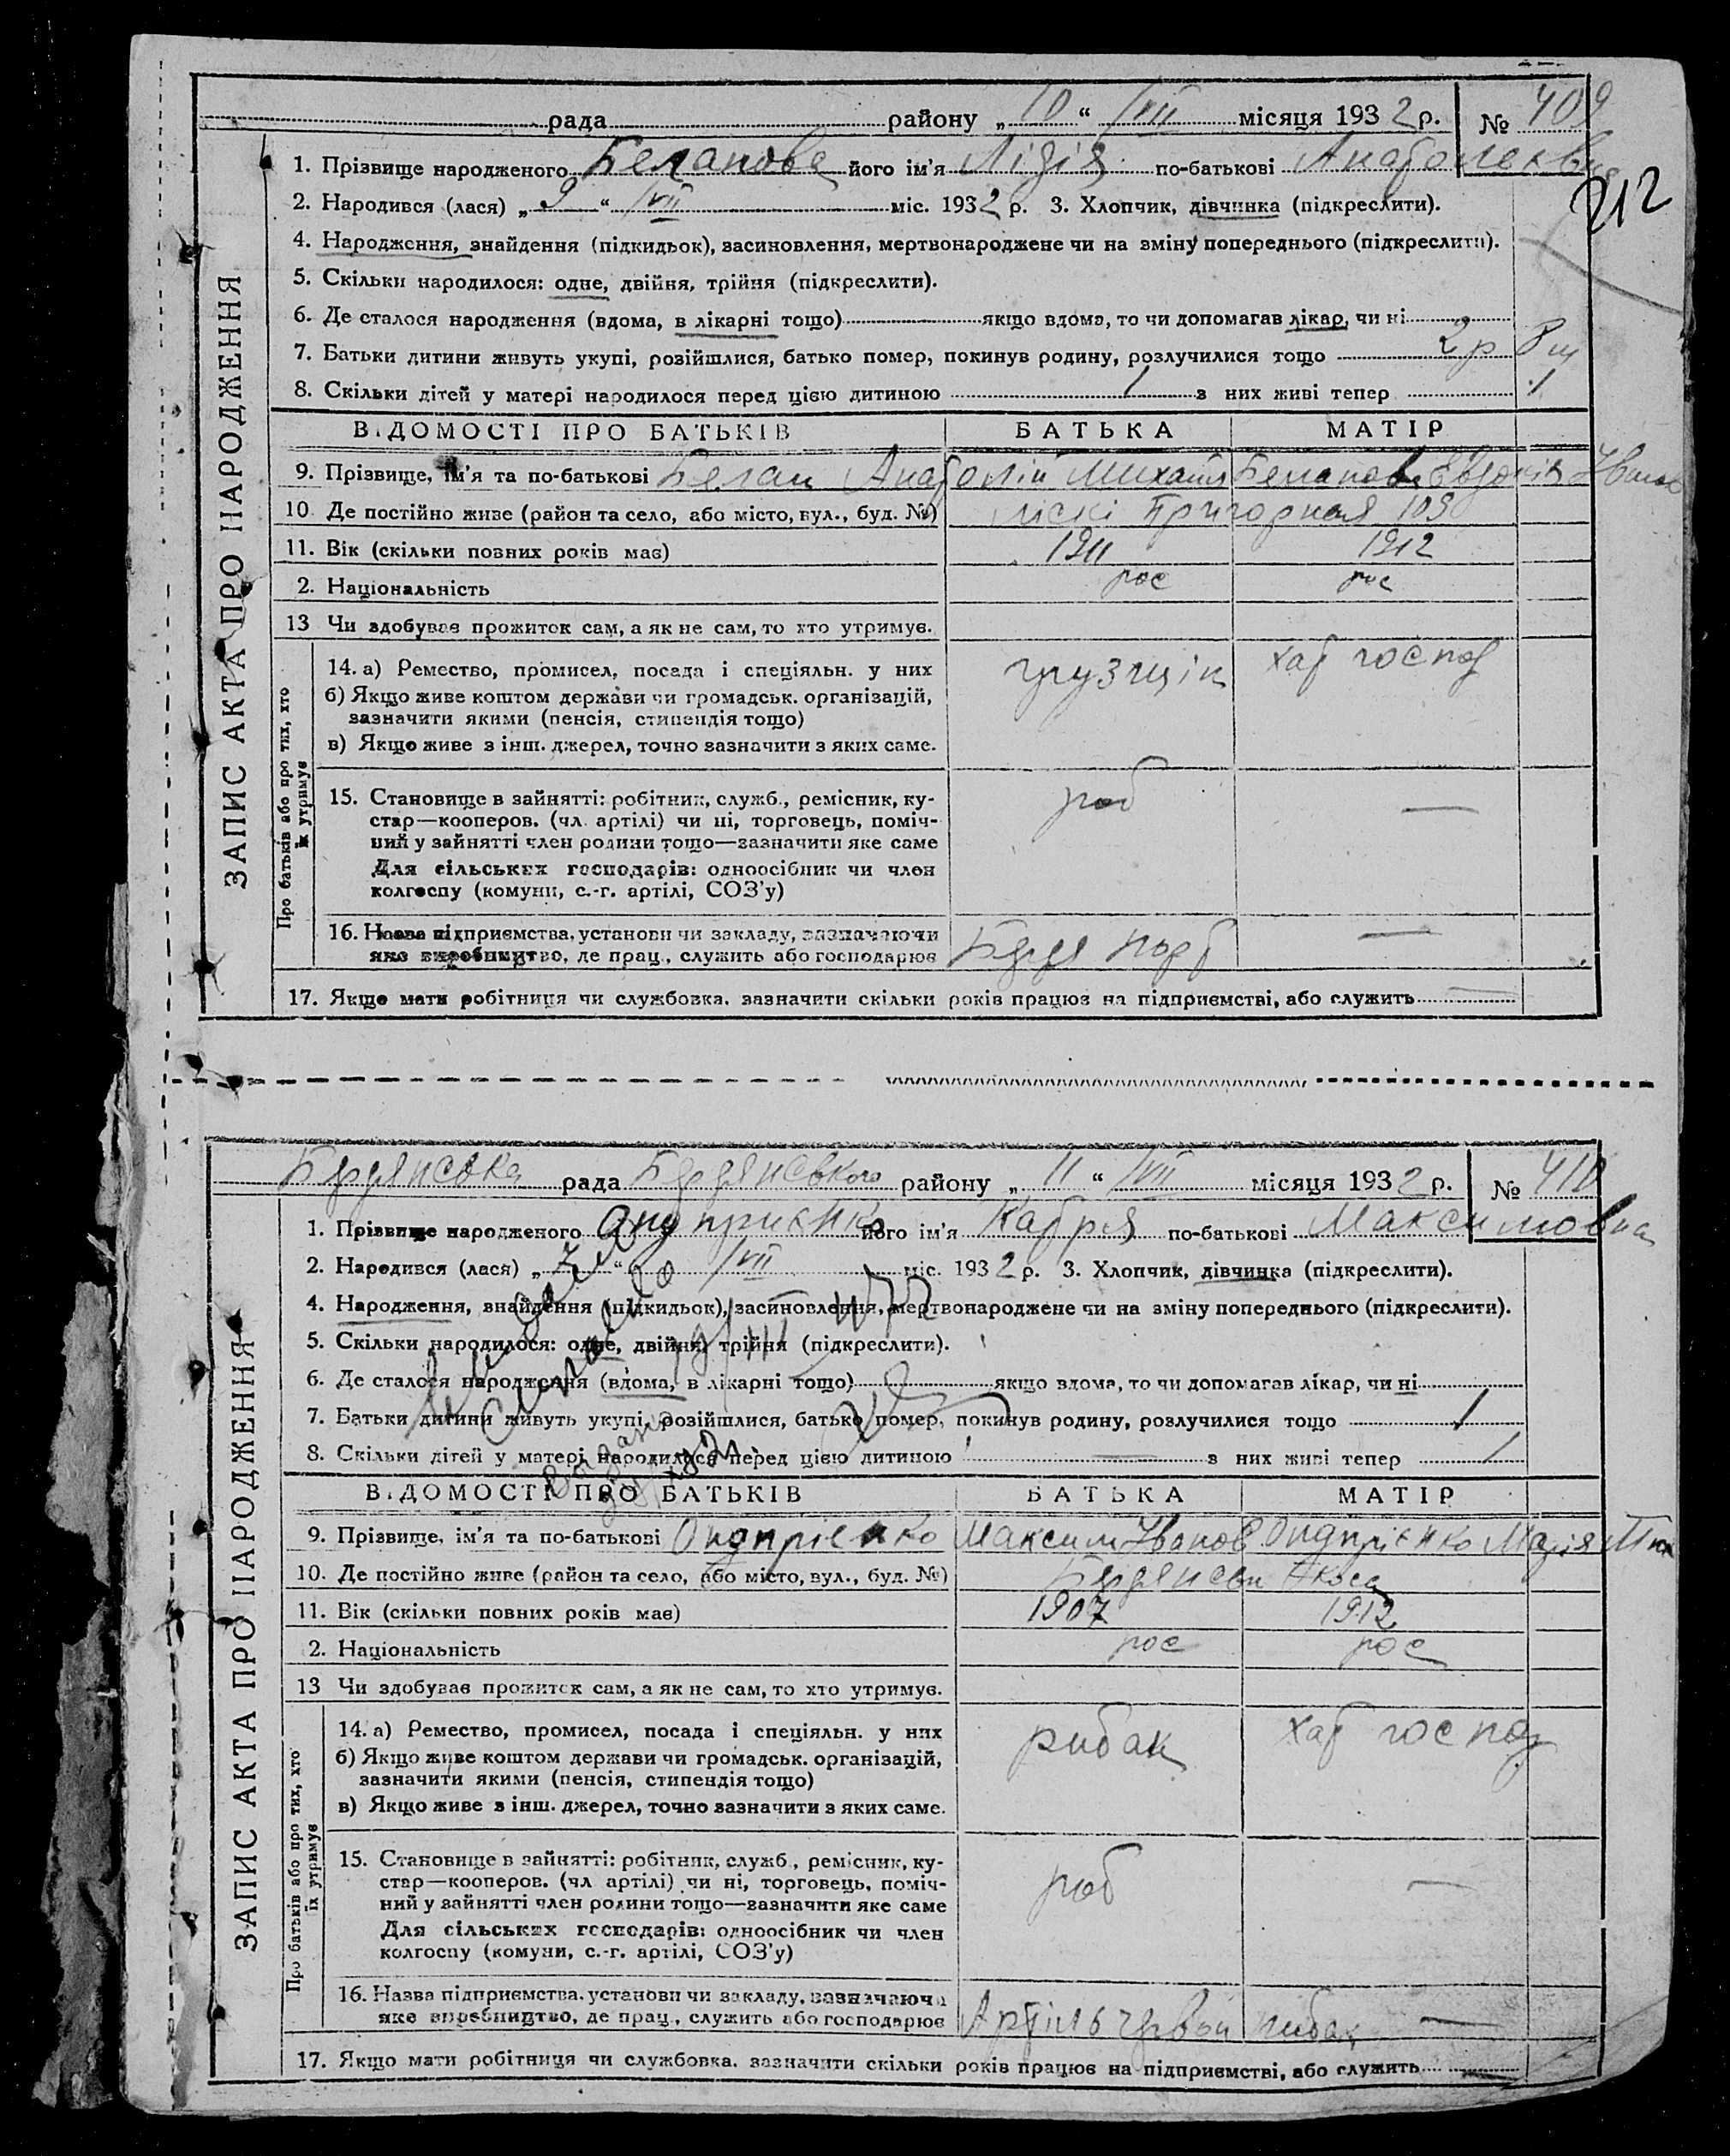 рада району „ 10 “ VII місяця 1932 р. № 409
1. Прізвище народженого Беланова його ім'я Лідія по-батькові
212
2. Народився (лася) „ 9 “ VII міс. 1932 р. 3. Хлопчик, дівчинка (підкреслити).
4. Народження, знайдення (підкидьок), засиновлення, мертвонароджене чи на зміну попереднього (підкреслити).
5. Скільки народилося: одне, двійня, трійня (підкреслити).
6. Де сталося народження (вдома, в лікарні тощо) якщо вдома, то чи допомагав лікар, чи ні
7. Батьки дитини живуть укупі, розійшлися, батько помер, покинув родину, розлучилися тощо 2 р
8. Скільки дітей у матері народилося перед цією дитиною 1 з них живі тепер 1
ВІДОМОСТІ ПРО БАТЬКІВ БАТЬКА МАТІР
9. Прізвище, ім'я та по-батькові Белан Анатолій Михайл Беланова Євдокія Иванов
10. Де постійно живе (район та село, або місто, вул., буд. №) Лiскі Пригорная 103
11. Вік (скільки повних років має) 1911 1912
2. Національність рос рос
13 Чи здобуває прожиток сам, а як не сам, то хто утримує.
14. а) Ремество, промисел, посада і спеціяльн. у них грузчік хат господ
б) Якщо живе коштом держави чи громадськ. організацій,
зазначити якими (пенсія, стипендія тощо)
в) Якщо живе з інш. джерел, точно зазначити з яких саме.
15. Становище в зайнятті: робітник, служб., ремісник, ку- роб —
стар—кооперов. (чл. артілі) чи ні, торговець, поміч-
ний у зайнятті член родини тощо—зазначити яке саме
Для сільських господарів: одноосібник чи член
колгоспу (комуни, с.-г. артілі, СОЗ'у)
16. Назва підприємства, установи чи закладу, зазначаючи
яке виробництво, де прац., служить або господарює Бердя порт —
17. Якщо мати робітниця чи службовка, зазначити скільки років працює на підприємстві, або служить —
ЗАПИС АКТА ПРО НАРОДЖЕННЯ
Про батьків або про тих, хто
їх утримує
Бердянська рада Бердянського району „ 11 “ VII місяця 1932 р. № 410
1. Прізвище народженого його ім'я по-батькові Максимовна
2. Народився (лася) „ 7 “ VII міс. 1932 р. 3. Хлопчик, дівчинка (підкреслити).
4. Народження, знайдення (підкидьок), засиновлення, мертвонароджене чи на зміну попереднього (підкреслити).
5. Скільки народилося: одне, двійня, трійня (підкреслити).
6. Де сталося народження (вдома, в лікарні тощо) якщо вдома, то чи допомагав лікар, чи ні
7. Батьки дитини живуть укупі, розійшлися, батько помер, покинув родину, розлучилися тощо 1
8. Скільки дітей у матері народилося перед цією дитиною — з них живі тепер 1
ВІДОМОСТІ ПРО БАТЬКІВ БАТЬКА МАТІР
9. Прізвище, ім'я та по-батькові Ондпріенко Максим Иванов Ондпріенко Марія
10. Де постійно живе (район та село, або місто, вул., буд. №) Бердянськ Коса
11. Вік (скільки повних років має) 1907 1912
2. Національність рос рос
13 Чи здобуває прожиток сам, а як не сам, то хто утримує.
14. а) Ремество, промисел, посада і спеціяльн. у них рибак хат господ
б) Якщо живе коштом держави чи громадськ. організацій,
зазначити якими (пенсія, стипендія тощо)
в) Якщо живе з інш. джерел, точно зазначити з яких саме.
15. Становище в зайнятті: робітник, служб., ремісник, ку- роб —
стар—кооперов. (чл. артілі) чи ні, торговець, поміч-
ний у зайнятті член родини тощо—зазначити яке саме
Для сільських господарів: одноосібник чи член
колгоспу (комуни, с.-г. артілі, СОЗ'у)
16. Назва підприємства, установи чи закладу, зазначаючи
яке виробництво, де прац., служить або господарює Артіль червон рибак —
17. Якщо мати робітниця чи службовка, зазначити скільки років працює на підприємстві, або служить
ЗАПИС АКТА ПРО НАРОДЖЕННЯ
Про батьків або про тих, хто
їх утримує